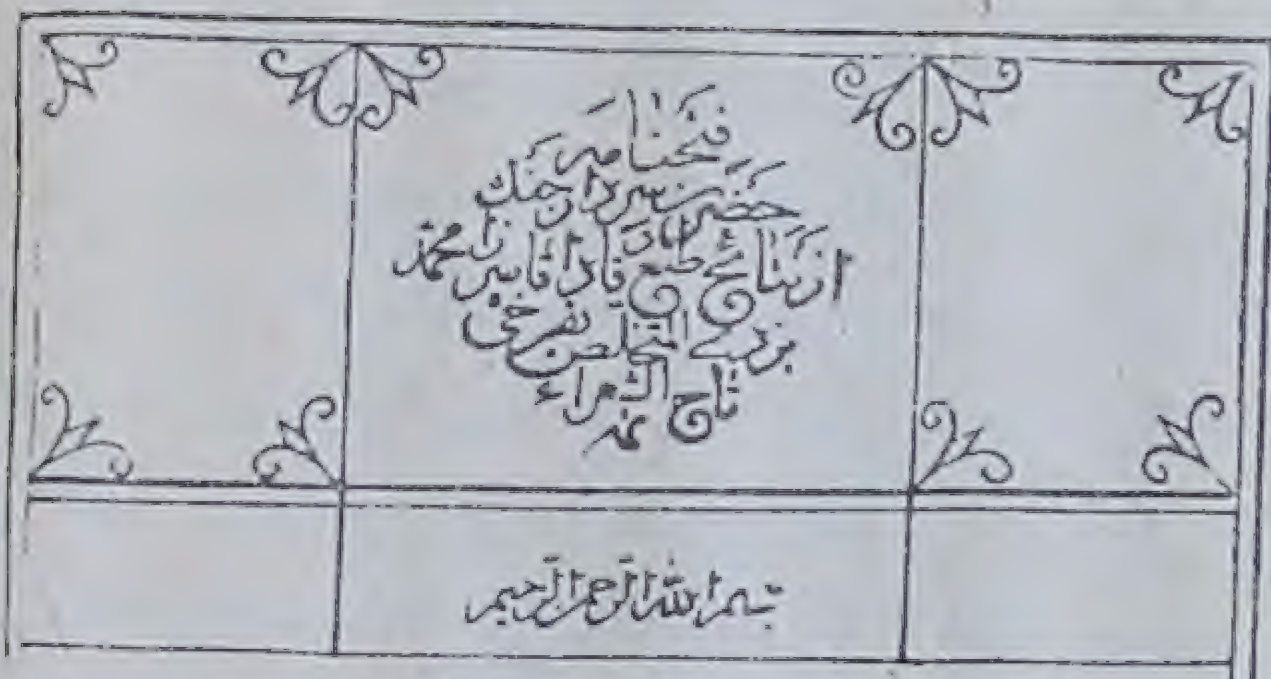 فتحنامه
حضرت سردار جنگ
از نتائج طبع میرزا محمد
یزدی المتخلص بفرخی
تاج الشعراء
بسم الله الرحمن الرحیم